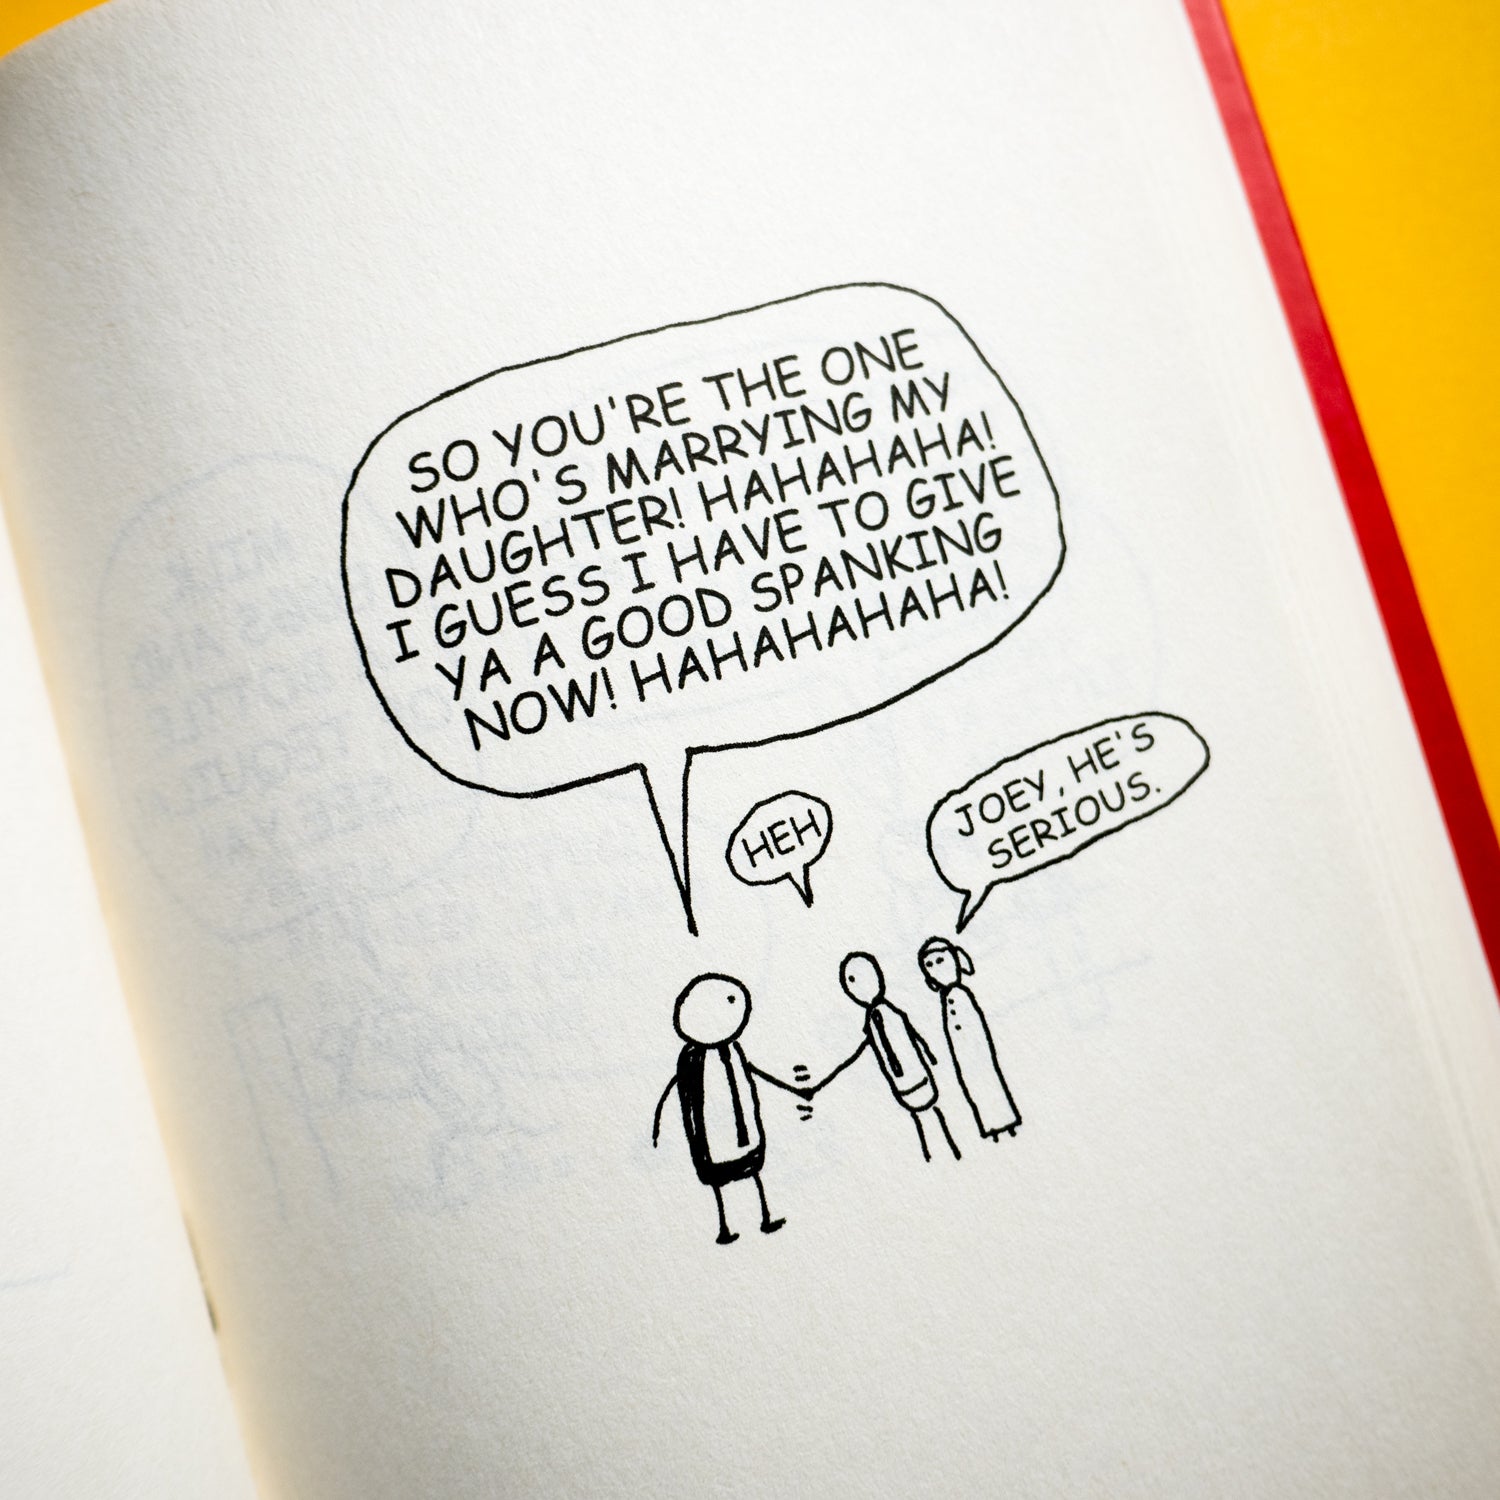 SO YOU'RE THE ONE
WHO'S MARRYING MY
DAUGHTER! HAHAHAHA!
I GUESS I HAVE TO GIVE
YA A GOOD SPANKING
NOW! HAHAHAHAHA!
HEH
JOEY, HE'S
SERIOUS.